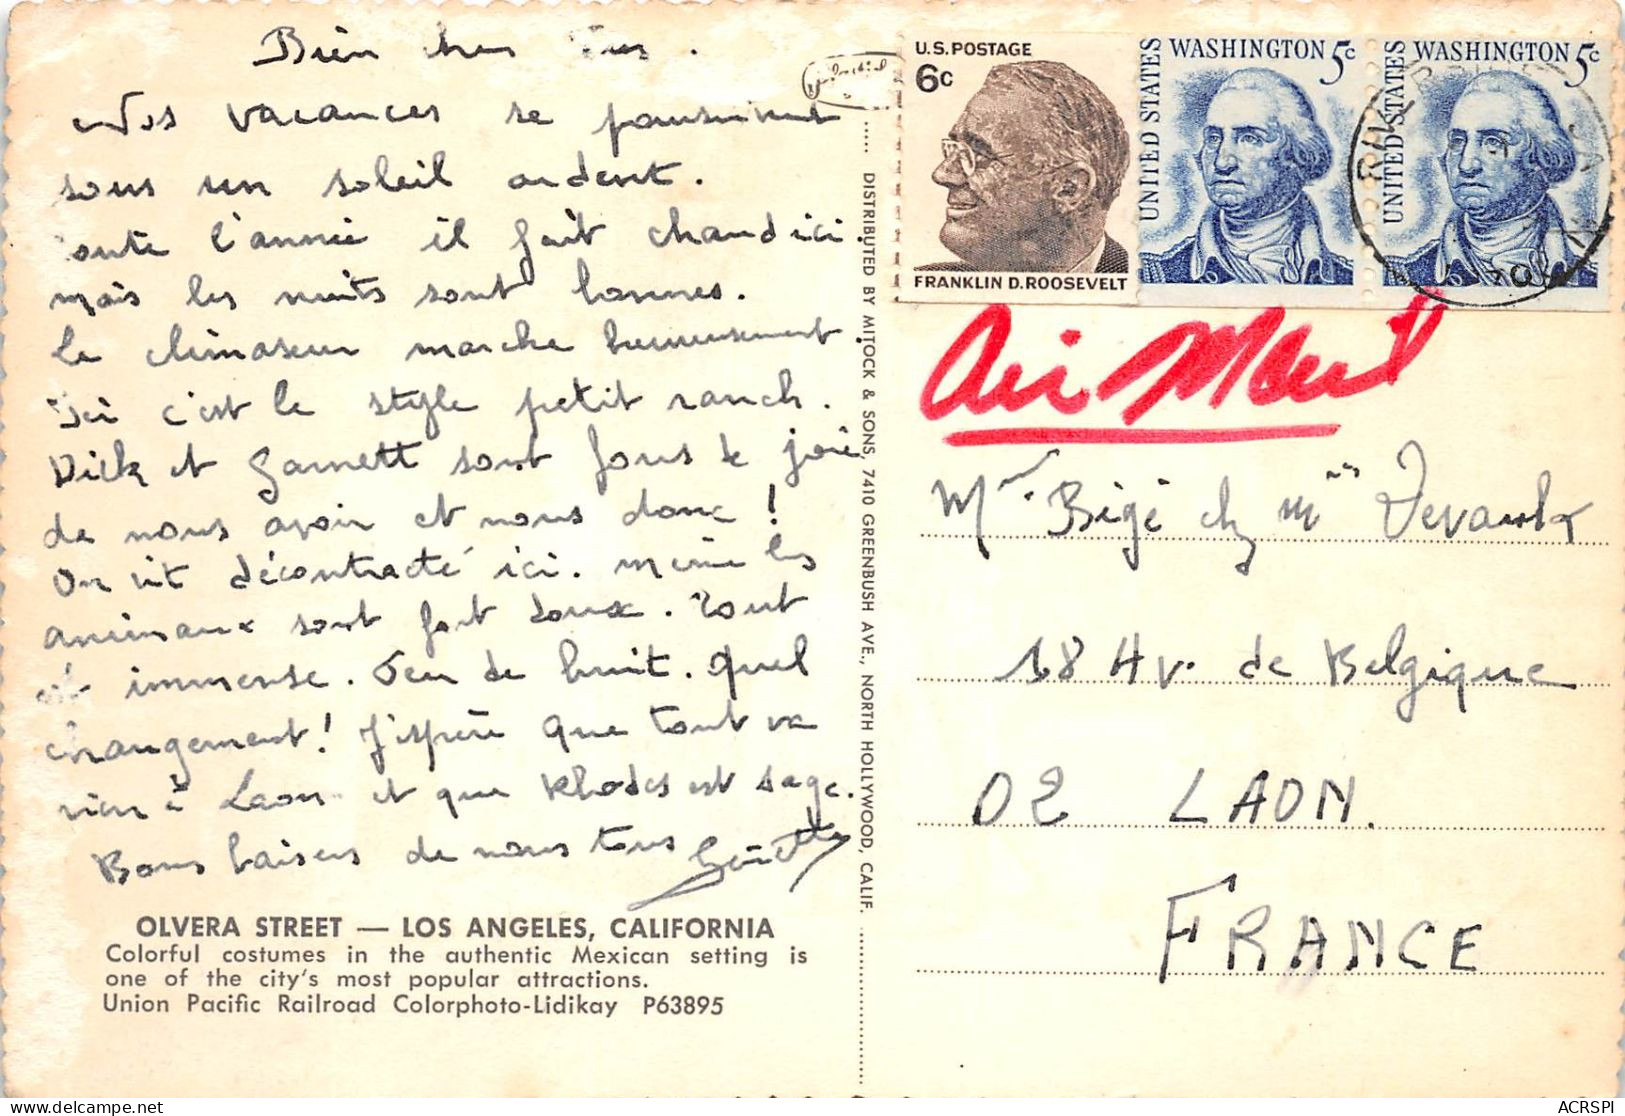 Bien chers Tous.
Nos vacances se poursuivent
sous un soleil ardent.
Toute l'année il fait chaud ici.
mais les nuits sont bonnes.
Le climaseur marche heureusement
Ici c'est le style petit ranch.
Dick et Garnett sont fous de joie
de nous avoir et nous donc !
On vit décontracté ici. Même les
animaux sont fort doux. Tout
est immense. Peu de bruit. Quel
changement ! J'espère que tout va
bien à Laon et que Rhodes est sage.
Bons baisers de nous tous
OLVERA STREET — LOS ANGELES, CALIFORNIA
Colorful costumes in the authentic Mexican setting is
one of the city's most popular attractions.
Union Pacific Railroad Colorphoto-Lidikay P63895
DISTRIBUTED BY MITOCK & SONS, 7410 GREENBUSH AVE., NORTH HOLLYWOOD, CALIF.
U.S. POSTAGE
6c
FRANKLIN D. ROOSEVELT
WASHINGTON 5c
UNITED STATES
WASHINGTON 5c
UNITED STATES
Air Mail
Mr Bigé chez Mr
18 Av. de Belgique
02 LAON.
FRANCE
ACRSPI